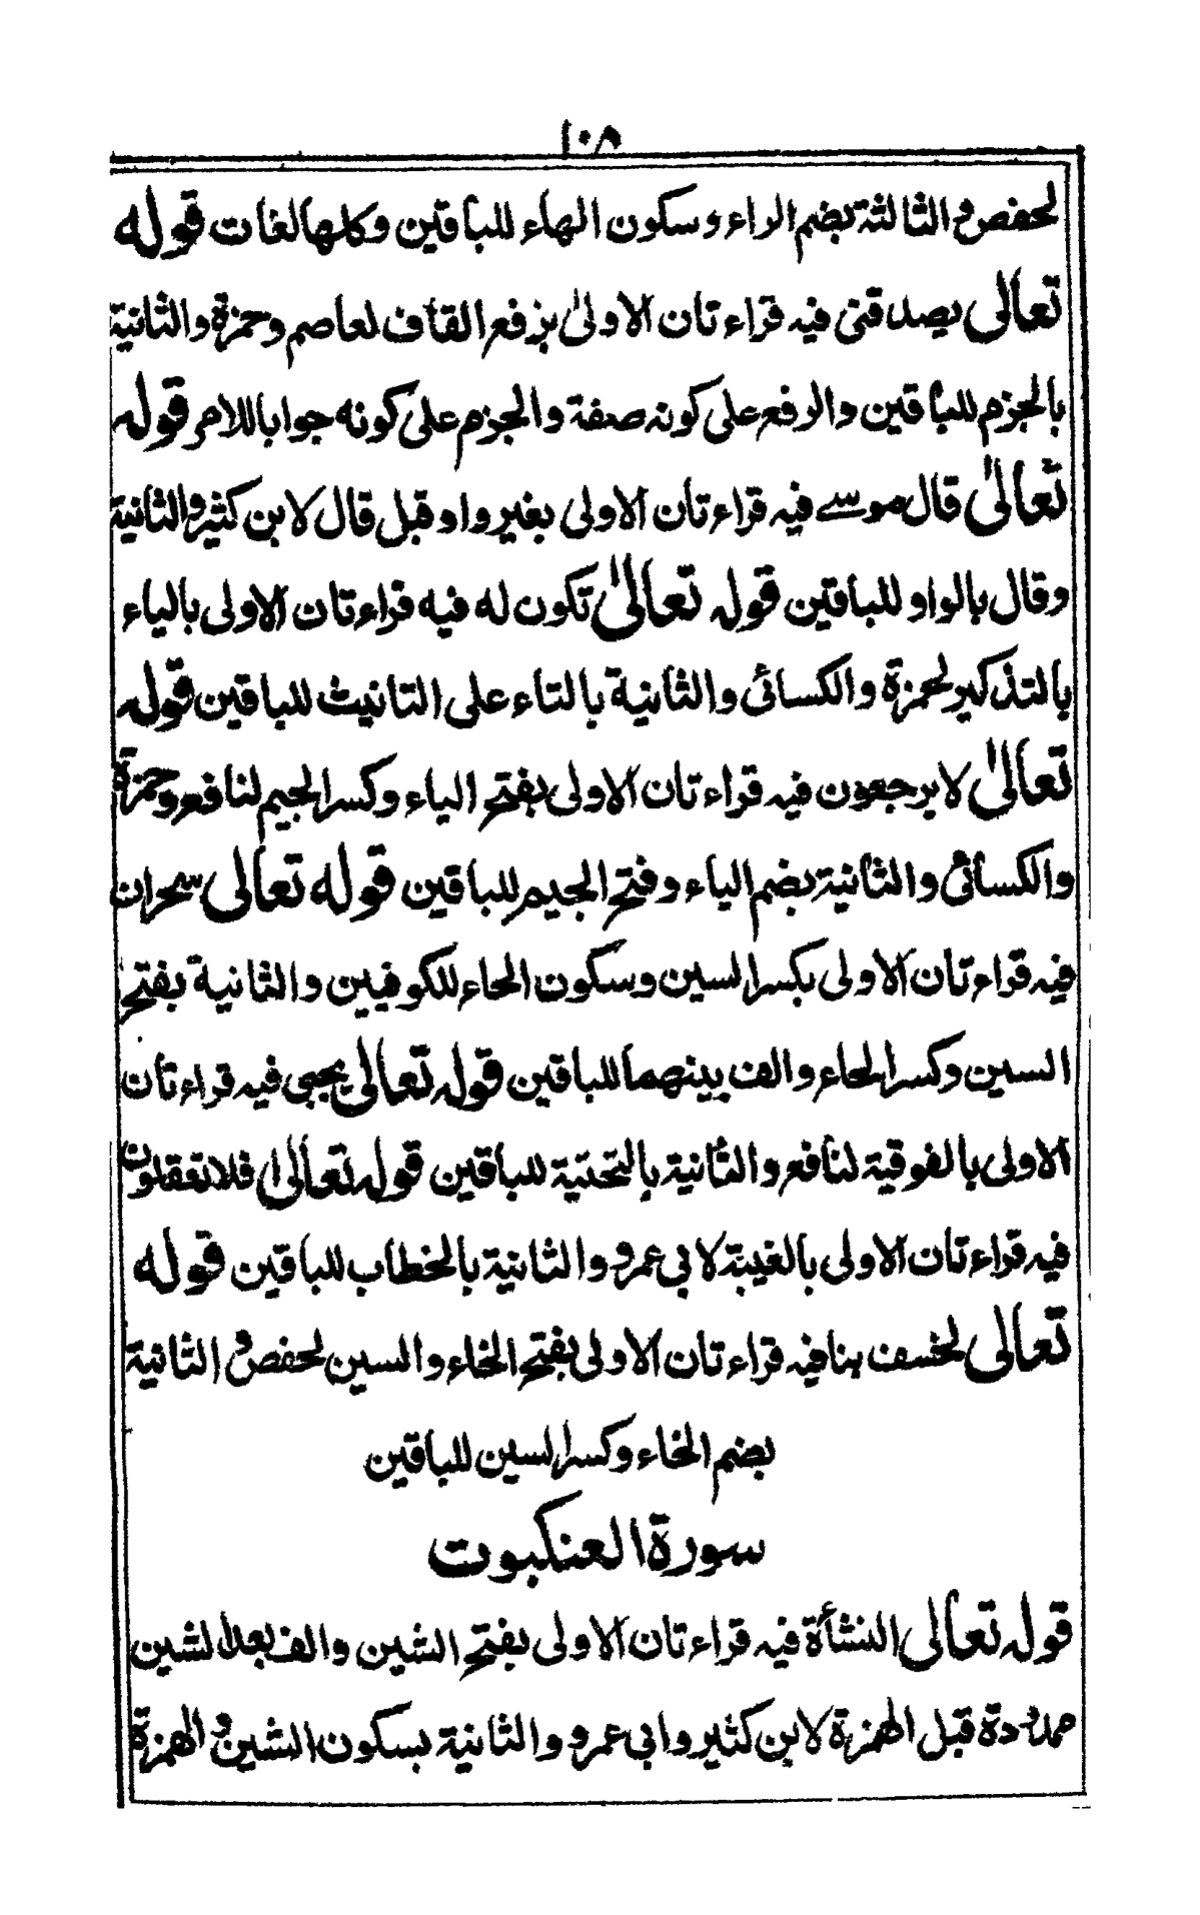 ١٠٨
لحفص والثالثة بضم الراء وسكون الهاء للباقين وكلها لغات قوله
تعالى يصدقنى فيه قراءتان الاولىٰ برفع القاف لعاصم وحمزة والثانية
بالجزم للباقين والرفع على كونه صفة والجزم على كونه جوابا للامر قوله
تعالىٰ قال موسے فيه قراءتان الاولى بغير واو قبل قال لابن كثير والثانية
وقال بالواو للباقين قوله تعالىٰ تكون له فيه قراءتان الاولى بالياء
بالتذكير لحمزة والكسائى والثانية بالتاء على التانيث للباقين قوله
تعالىٰ لا يرجعون فيه قراءتان الاولى بفتح الياء وكسر الجيم لنافع وحمزة
والكسائى والثانية بضم الياء وفتح الجيم للباقين قوله تعالى سحران
فيه قراءتان الاولى بكسر السين وسكون الحاء للكوفيين والثانية بفتح
السين وكسر الحاء والف بينهما للباقين قوله تعالى يجبى فيه قراءتان
الاولى بالفوقية لنافع والثانية بالتحتية للباقين قوله تعالىٰ افلا تعقلون
فيه قراءتان الاولى بالغيبة لابي عمرو والثانية بالخطاب للباقين قوله
تعالى لخسف بنا فيه قراءتان الاولى بفتح الخاء والسين لحفص والثانية
بضم الخاء وكسر السين للباقين
سورة العنكبوت
قوله تعالى النشأة فيه قراءتان الاولى بفتح الشين والف بعد الشين
ممدودة قبل الهمزة لابن كثير وابي عمرو والثانية بسكون الشين والهمزة